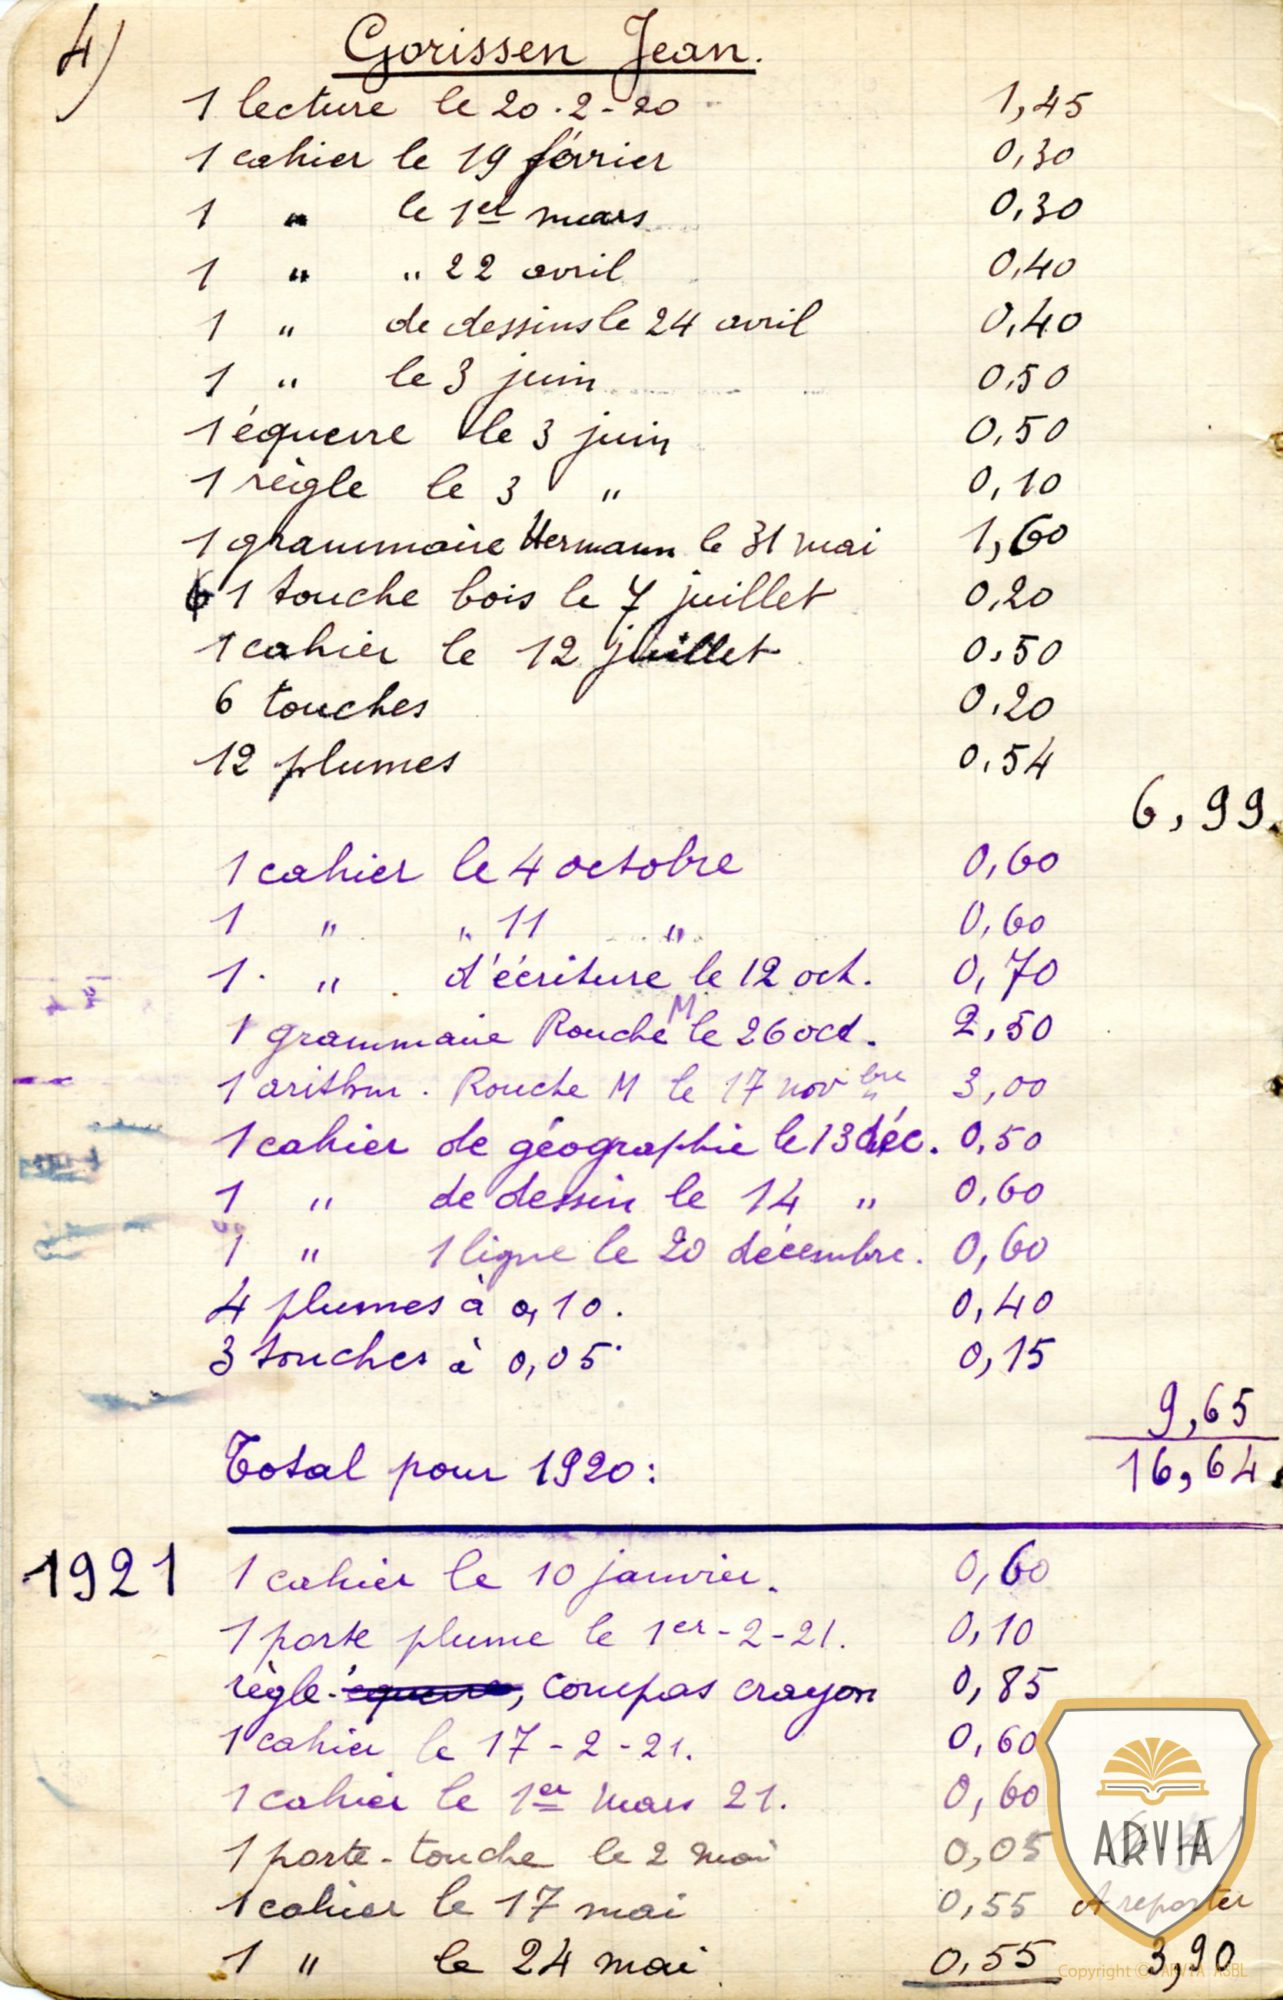 4) Gorissen Jean.
1 lecture le 20-2-20 1,45
1 cahier le 19 février 0,30
1 " le 1er mars 0,30
1 " " 22 avril 0,40
1 " de dessins le 24 avril 0,40
1 " le 3 juin 0,50
1 équerre le 3 juin 0,50
1 règle le 3 " 0,10
1 grammaire Hermann le 31 mai 1,60
1 touche bois le 7 juillet 0,20
1 cahier le 12 juillet 0,50
6 touches 0,20
12 plumes 0,54
6,99.
1 cahier le 4 octobre 0,60
1 " " 11 " 0,60
1 " d'écriture le 12 oct. 0,70
1 grammaire Rouche M le 26 oct. 2,50
1 arithm. Rouche M le 17 novbre 3,00
1 cahier de géographie le 13 déc. 0,50
1 " de dessin le 14 " 0,60
1 " 1 ligne le 20 décembre. 0,60
4 plumes à 0,10. 0,40
3 touches à 0,05 0,15
9,65
Total pour 1920: 16,64.
1921 1 cahier le 10 janvier. 0,60
1 porte plume le 1er-2-21. 0,10
règle-équerre, compas crayon 0,85
1 cahier le 17-2-21. 0,60
1 cahier le 1er mars 21. 0,60
1 porte-touche le 2 mai 0,05
ARVIA
1 cahier le 17 mai 0,55 A reporter
1 " le 24 mai 0,55 3,90
Copyright © ARVIA ASBL